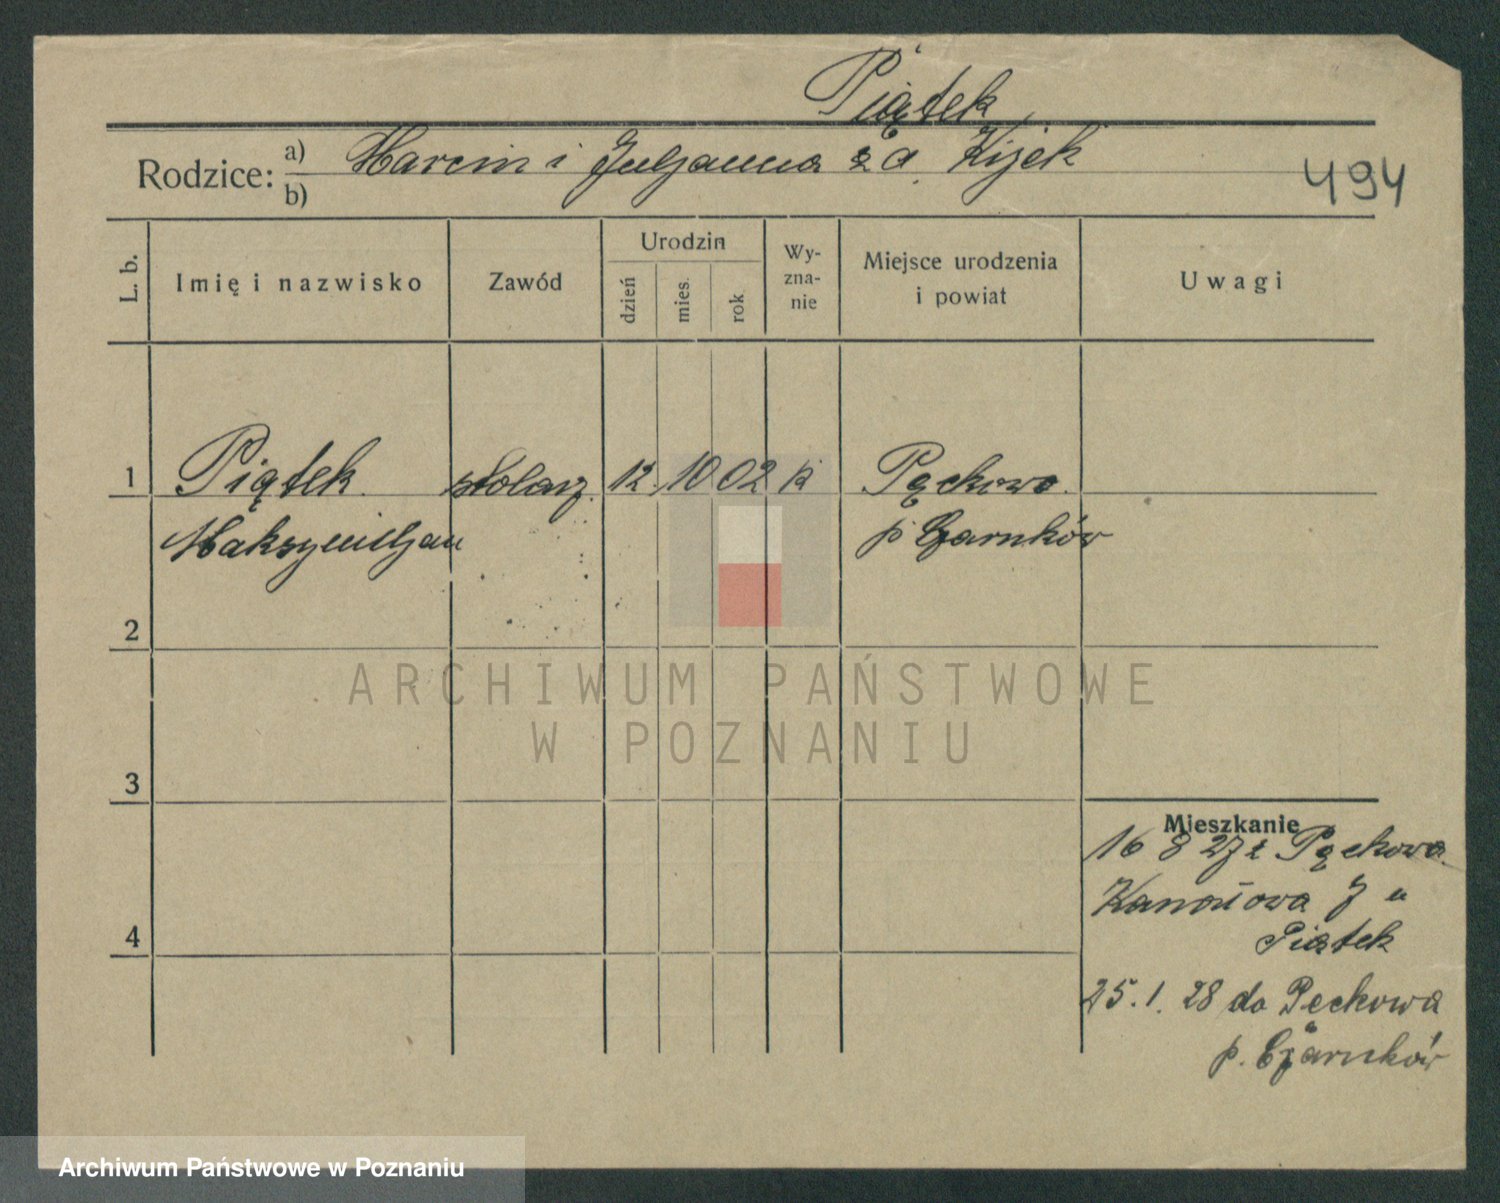 Piątek
Rodzice: a) Marcin i Juljanna z d. Kijek
b)
494
L. b. Imię i nazwisko Zawód Urodzin dzień mies. rok Wyznanie Miejsce urodzenia i powiat Uwagi
1 Piątek stolarz. 12. 10 02 k Pęckowo.
Maksymiljan p Czarnków
2
ARCHIWUM PAŃSTWOWE
W POZNANIU
3
Mieszkanie
16 8 27 z Pęckowa
Kanałowa 7 u
4
Piątek
25.1.28 do Pęckowa
p. Czarnków
Archiwum Państwowe w Poznaniu